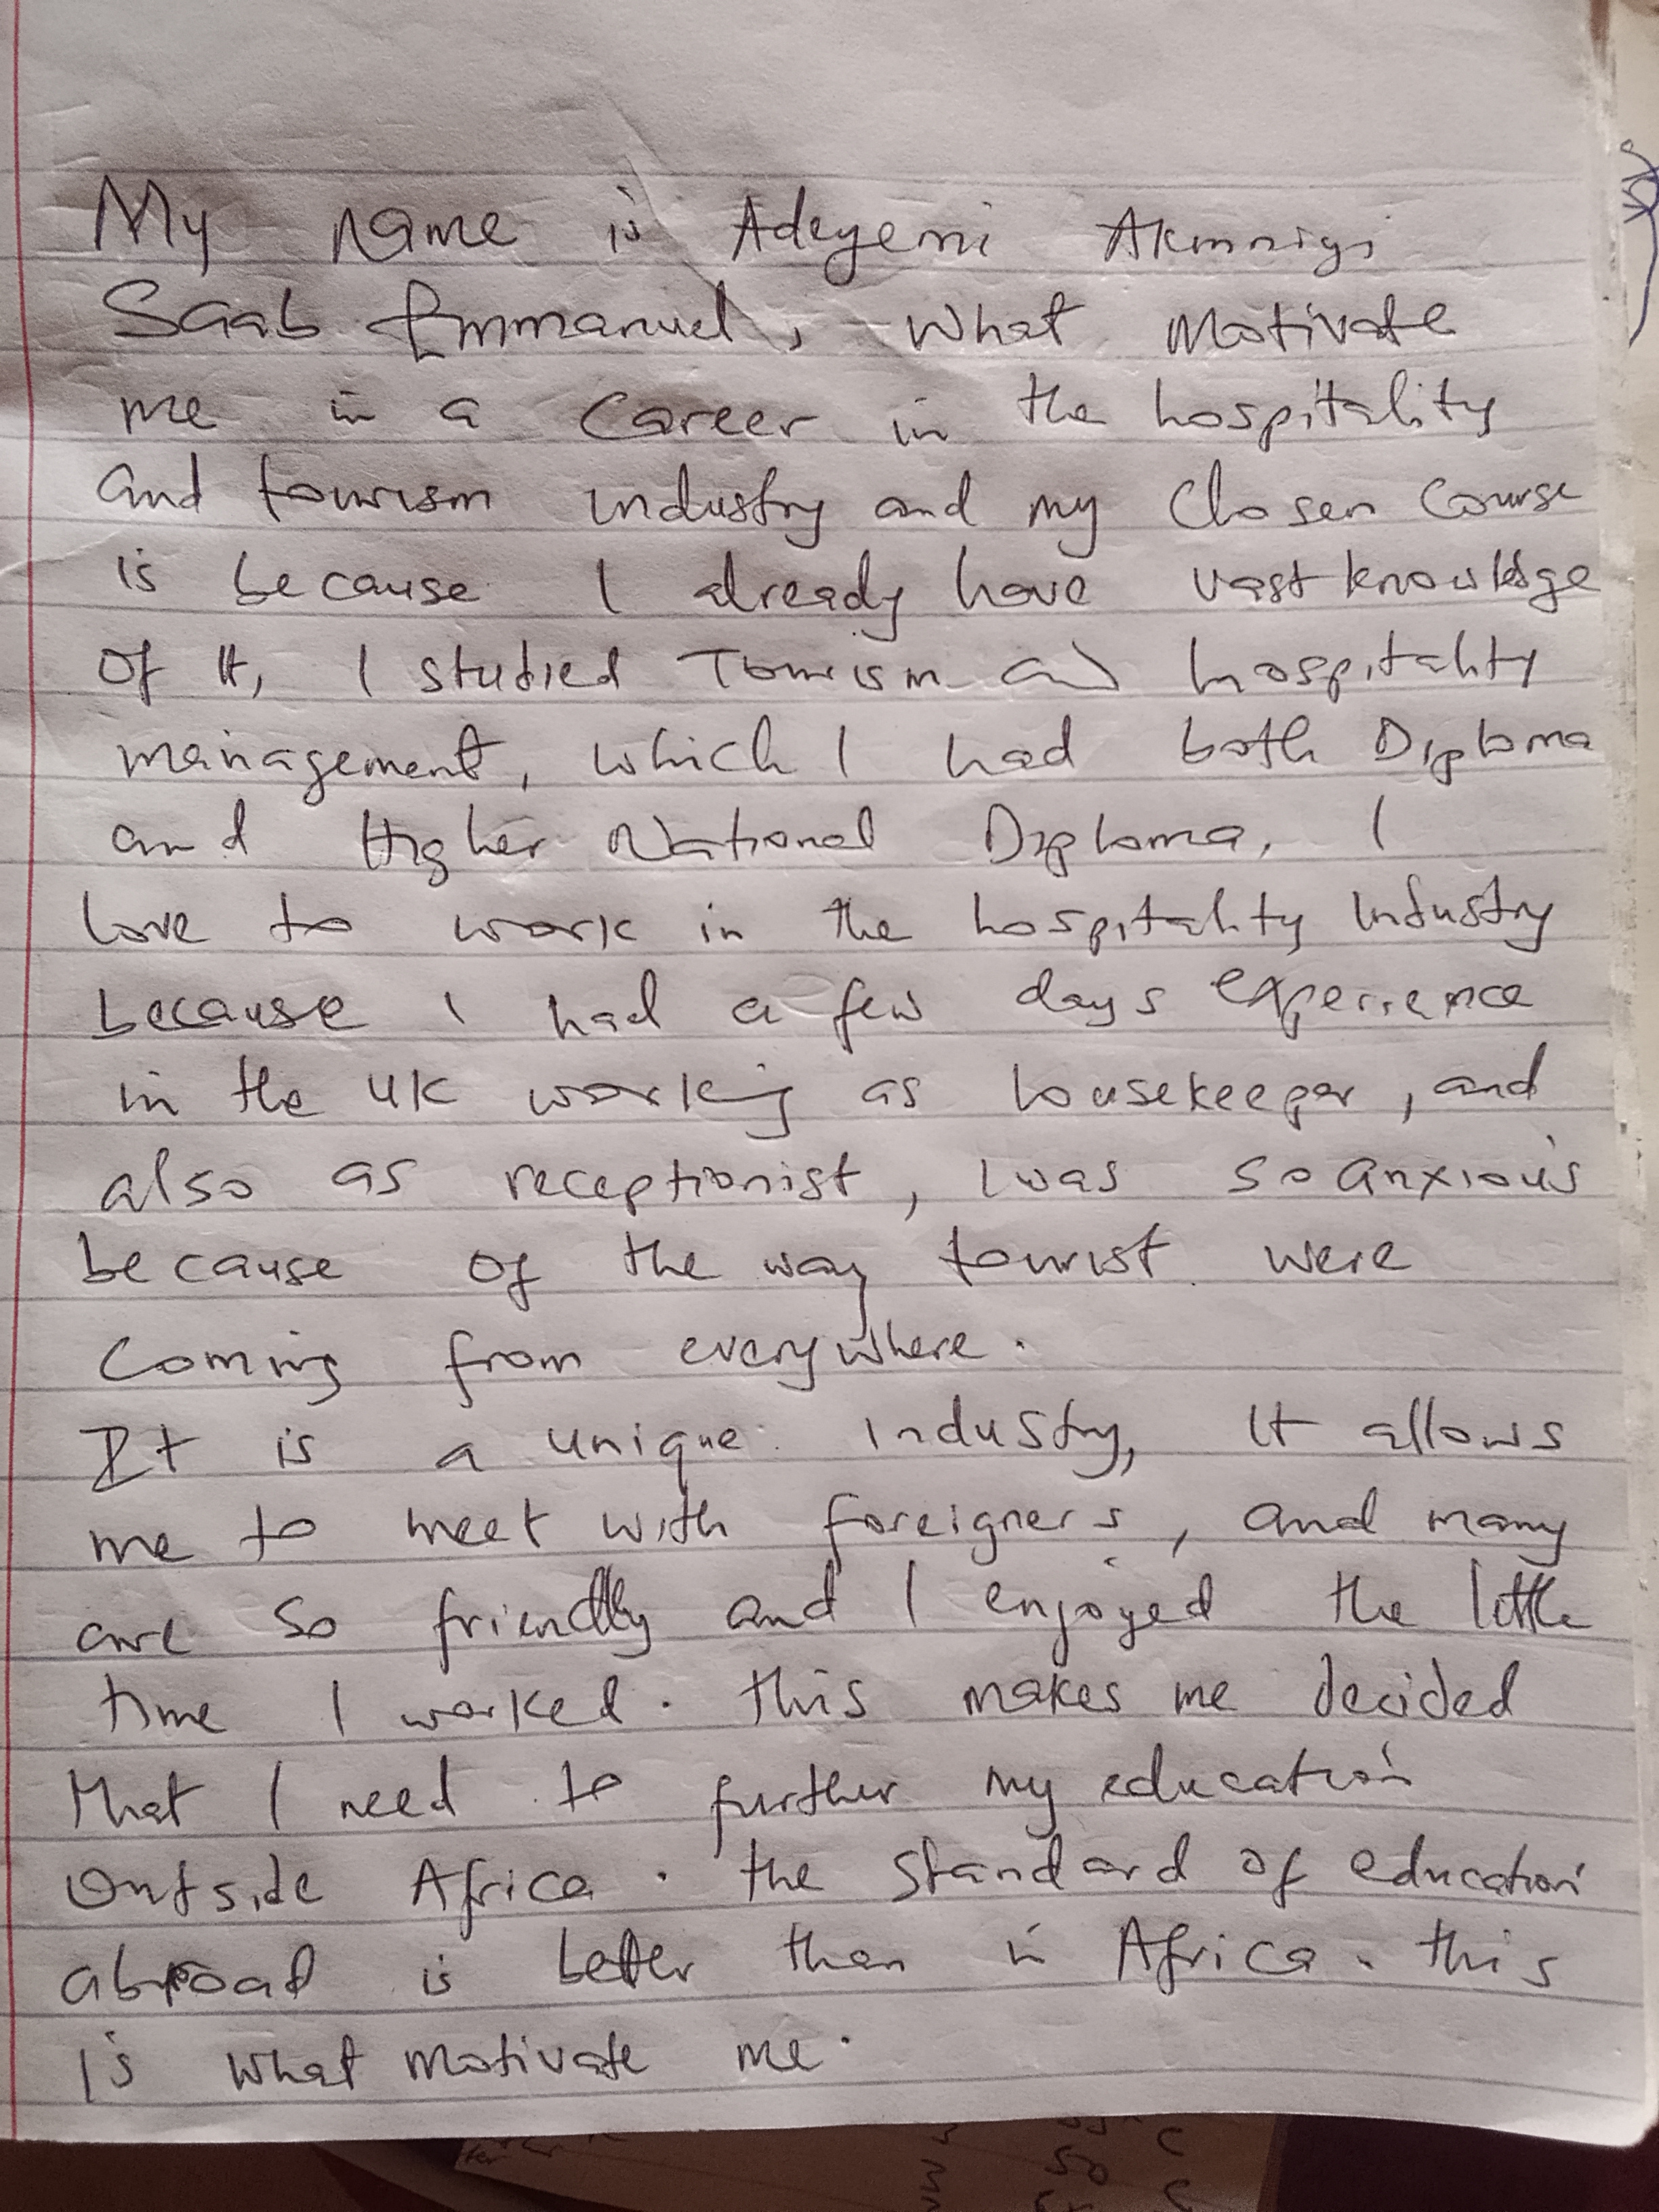 My name is Adeyemi
Saab Emmanuel, What Motivate
me in a Career in the hospitality
and tourism industry and my Chosen Course
is because I already have vast knowledge
Of It, I studied Tourism and hospitality
management, which I had both Diploma
and Higher National Diploma, I
love to work in the hospitality Industry
because I had a few days experience
in the UK working as housekeeper, and
also as receptionist, I was so anxious
because of the way tourist were
Coming from everywhere.
It is a unique Industry, It allows
me to meet with foreigners, and many
are so friendly and I enjoyed the little
time I worked. this makes me decided
that I need to further my education
Outside Africa. the standard of education
abroad is better than in Africa. this
is what motivate me.